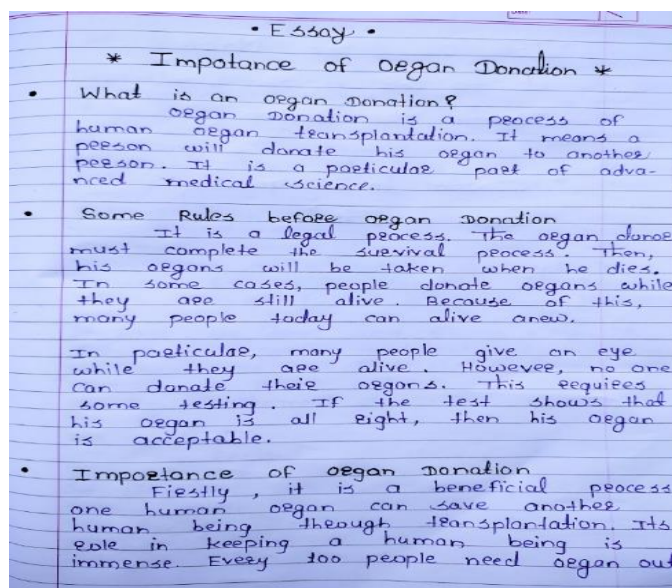 • Essay •
* Impotance of organ Donation *
• What is an organ Donation?
organ Donation is a process of
human organ transplantation. It means a
person will donate his organ to another
person. It is a particular part of adva-
nced medical science.
• Some Rules before organ Donation
It is a legal process. The organ donor
must complete the survival process. Then,
his organs will be taken when he dies.
In some cases, people donate organs while
they are still alive. Because of this,
many people today can alive anew.
In particular, many people give an eye
while they are alive. However, no one
can donate their organs. This requires
some testing. If the test shows that
his organ is all right, then his organ
is acceptable.
• Importance of organ Donation
Firstly, it is a beneficial process
one human organ can save another
human being through transplantation. Its
role in keeping a human being is
immense. Every 100 people need organ out